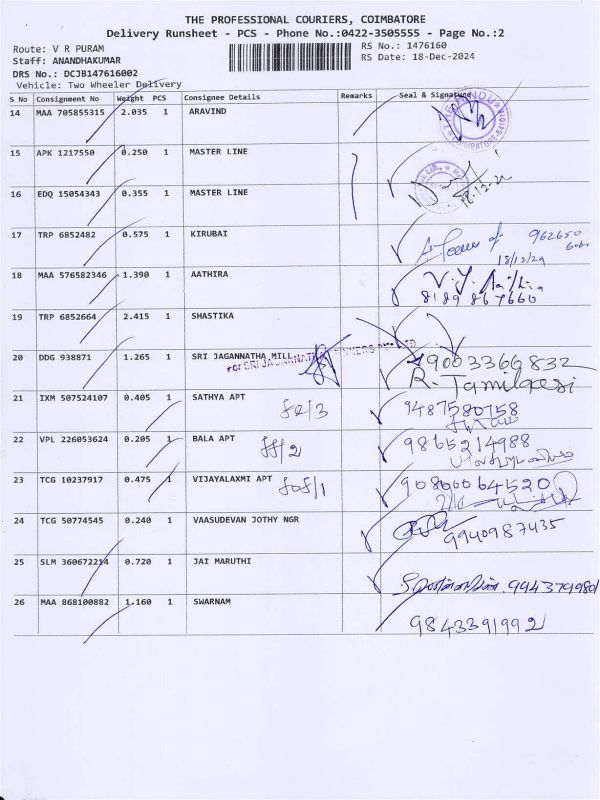 THE PROFESSIONAL COURIERS, COIMBATORE
Delivery Runsheet - PCS - Phone No.:0422-3505555 - Page No.:2
Route: V R PURAM
RS No.: 1476160
Staff: ANANDHAKUMAR
RS Date: 18-Dec-2024
DRS No.: DCJB147616002
Vehicle: Two Wheeler Delivery
S No Consignment No Weight PCS Consignee Details Remarks Seal & Signature
14 MAA 705855315 2.035 1 ARAVIND
15 APK 1217550 0.250 1 MASTER LINE
16 EDQ 15054343 0.355 1 MASTER LINE
17 TRP 6852482 0.575 1 KIRUBAI
18/12/24
18 MAA 576582346 1.390 1 AATHIRA
8189 867660
19 TRP 6852664 2.415 1 SHASTIKA
20 DDG 938871 1.265 1 SRI JAGANNATHA MILL
9003366832
R. Tamilarasi
21 IXM 507524107 0.405 1 SATHYA APT
9487580758
22 VPL 226053624 0.205 1 BALA APT
9865214988
23 TCG 10237917 0.475 1 VIJAYALAXMI APT
9080064520
24 TCG 50774545 0.240 1 VAASUDEVAN JOTHY NGR
9940987435
25 SLM 360672214 0.720 1 JAI MARUTHI
9943799801
26 MAA 868100882 1.160 1 SWARNAM
9843391992